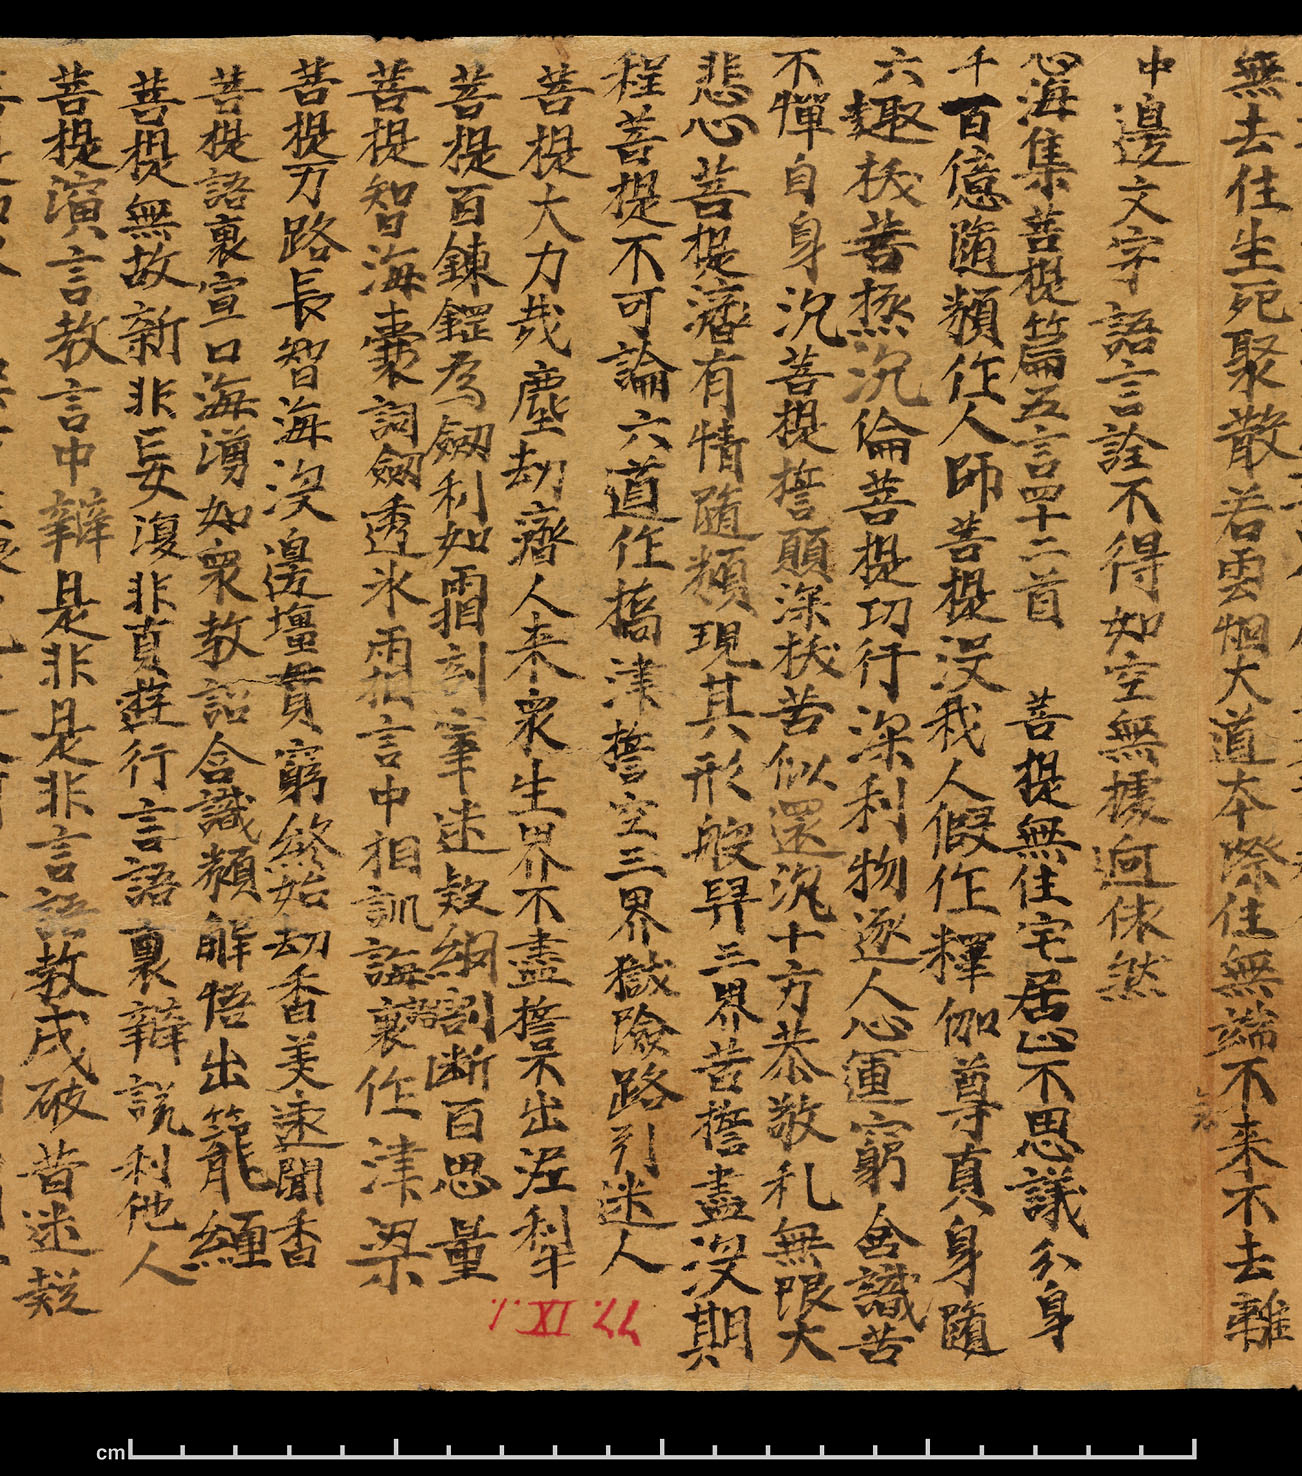 無去住生死聚散若雲烟大道本際住無端不來不去離
中邊文字語言詮不得如空無據迥依然
心海集菩提篇五言四十二首 菩提無住宅居止不思議分身
千百億隨類作人師菩提没我人假作釋伽尊真身隨
六趣救苦拯沉倫菩提功行深利物逐人心運窮含識苦
不憚自身沉菩提誓願深救苦似還沉十方恭敬礼無限大
悲心菩提濟有情隨類現其形般畀三界苦誓盡没期
程菩提不可論六道作橋津誓空三界獄險路引迷人
菩提大力哉塵劫濟人来衆生界不盡誓不出泥犁
菩提百鍊鍟為劔利如霜割牢迷疑網割断百思量
菩提智海囊詞劔透氷雨相言中相訓誨語裏作津梁
菩提万路長智海没邊壃貫窮終始劫香美速聞香
菩提語裏宣口海湧如衆教詔含識類解悟出籠纏
菩提無故新非妄復非真遊行言語裏辯説利他人
菩提演言教言中辯是非是非言語教戌破昔迷疑
77. IX. 1.
cm